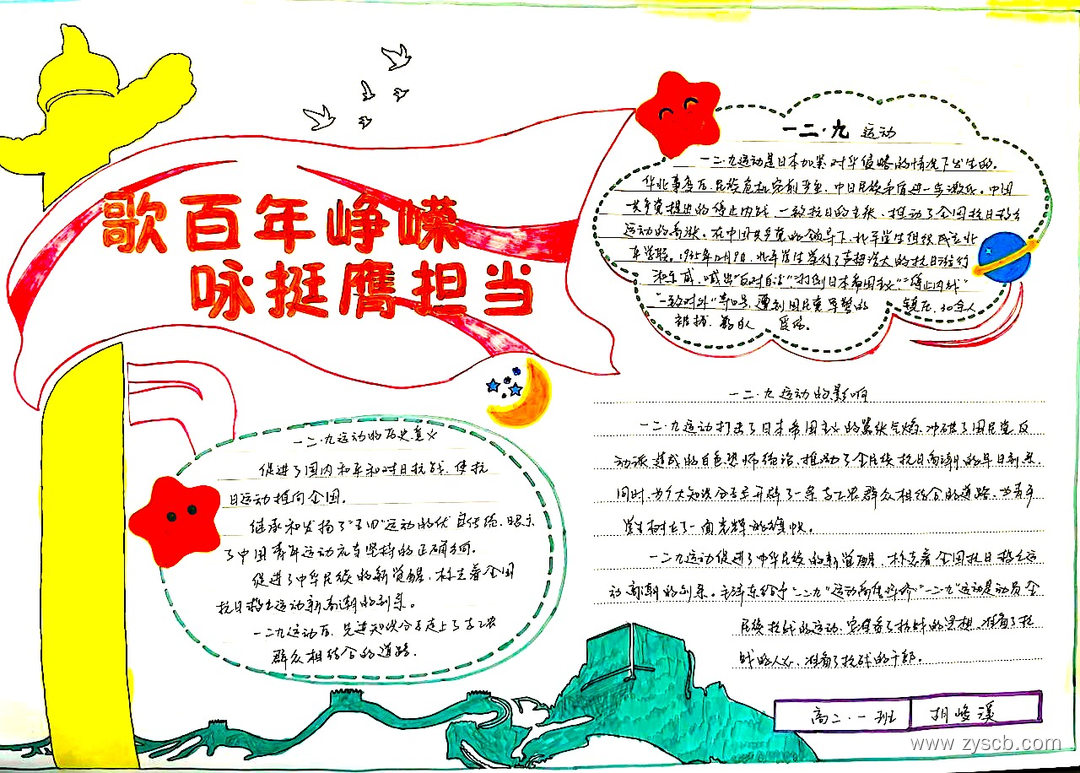 歌百年峥嵘
咏挺膺担当
一二·九 运动
一二·九运动是日本加紧对华侵略的情况下发生的。
华北事变后，民族危机空前严重，中日民族矛盾进一步激化。中国
共产党提出的停止内战，一致抗日的主张，推动了全国抗日救亡
运动的高涨。在中国共产党的领导下，北平学生组织成立北
平学联。1935年12月9日，北平学生举行了声势浩大的抗日游行
示威，喊出"反对自治""打倒日本帝国主义""停止内战"
"一致对外"等口号，遭到国民党军警的镇压，30余人
被捕，数百人受伤。
一二·九运动的历史意义
促进了国内和平和对日抗战，使抗
日运动推向全国。
继承和发扬了"五四"运动的优良传统，昭示
了中国青年运动应当坚持的正确方向。
促进了中华民族的新觉醒，标志着全国
抗日救亡运动新高潮的到来。
一二九运动后，先进知识分子走上了与工农
群众相结合的道路。
一二·九运动的影响
一二·九运动打击了日本帝国主义的嚣张气焰，冲破了国民党反
动派造成的白色恐怖统治，推动了全民族抗日高潮的早日到来。
同时，为广大知识分子开辟了一条与工农群众相结合的道路，为青年
学生树立了一面光辉的旗帜。
一二九运动促进了中华民族的新觉醒，标志着全国抗日救亡运
动高潮的到来。毛泽东给予"一二九"运动高度评价"一二九"运动是动员全
民族抗战的运动，它准备了抗战的思想，准备了抗
战的人心，准备了抗战的干部。
高二·一班
www.zyscb.com